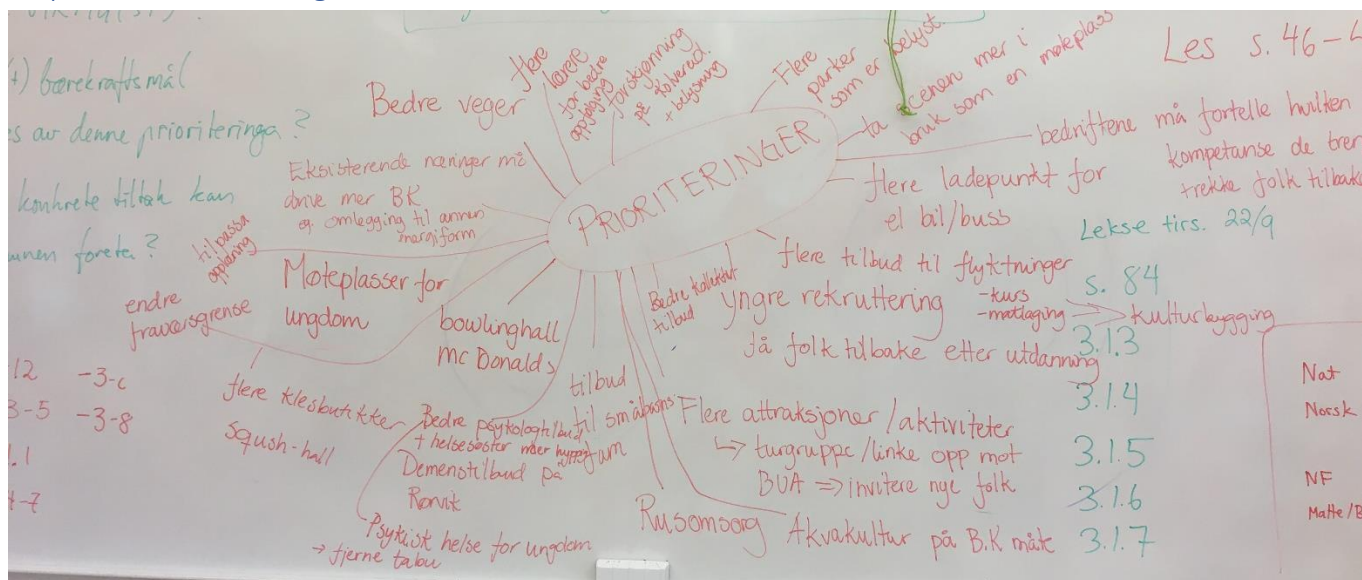 bærekraftsmål
s av denne prioriteringa?
konkrete tiltak kan
foreta?
12 -3-c
3-5 -3-8
1.1
4-7
PRIORITERINGER
Bedre veger
flere
lærere
for bedre
oppfølging
forskjønning
på Kolvereid
+ belysning
Flere
parker
som er belyst.
ta scenen mer i
bruk som en møteplass
bedriftene må fortelle hvilken
kompetanse de tren
trekke folk tilbake
flere ladepunkt for
el bil/buss
flere tilbud til flyktninger
-kurs
-matlaging
kulturbygging
yngre rekruttering
få folk tilbake etter utdanning
Bedre kollektivt
tilbud
Flere attraksjoner/aktiviteter
↳ turgruppe/linke opp mot
BUA => invitere nye folk
Akvakultur på B.K måte
Rusomsorg
tilbud
til småbarns
fam
Bedre psykologtilbud
+ helsesøster mer hyppig
Demenstilbud på
Rørvik
Psykisk helse for ungdom
→ fjerne tabu
bowlinghall
Mc Donalds
flere klesbutikker
squash-hall
endre
fraværsgrense
Møteplasser for
ungdom
tilpassa
opplæring
Eksisterende næringer må
drive mer BK
eg. omlegging til annen
energiform
Les s. 46-4
Lekse tirs. 22/9
s. 84
3.1.3
3.1.4
3.1.5
3.1.6
3.1.7
Nat
Norsk
NF
Matte/B